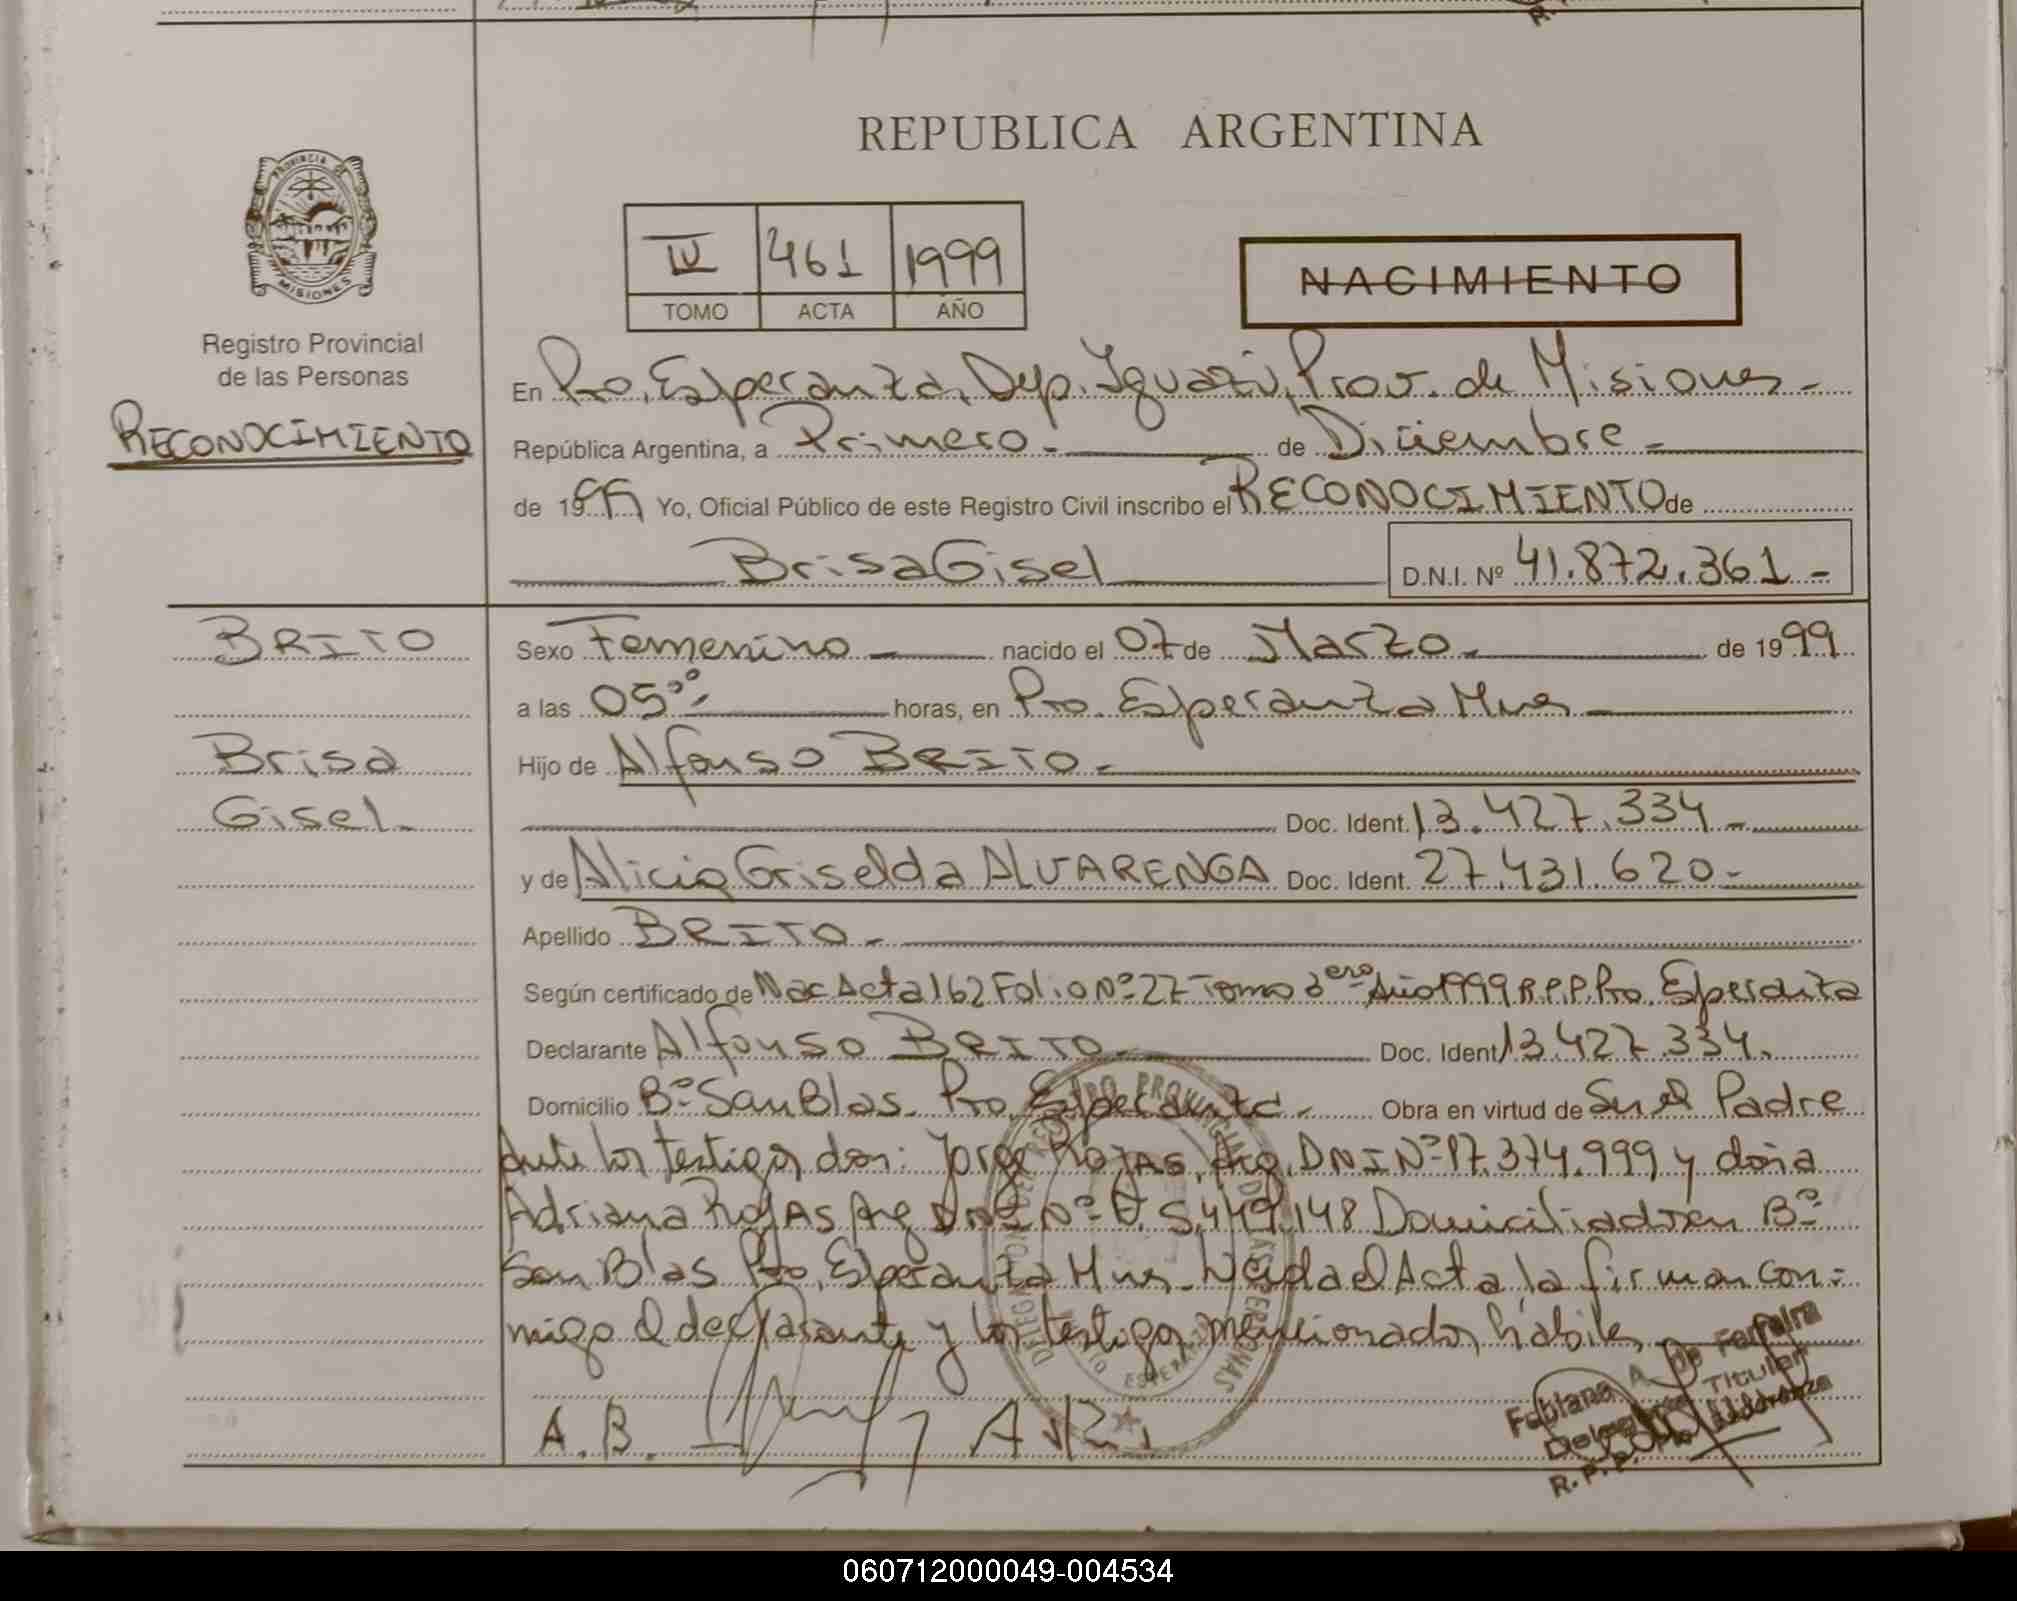 REPUBLICA ARGENTINA
PROVINCIA DE
MISIONES
IV 461 1999
TOMO ACTA AÑO
NACIMIENTO
Registro Provincial
de las Personas
RECONOCIMIENTO
En Pto. Esperanza, Dep. Iguazú, Prov. de Misiones -
República Argentina, a Primero - de Diciembre -
de 1999 Yo, Oficial Público de este Registro Civil inscribo el RECONOCIMIENTO de
Brisa Gisel D.N.I. Nº 41.872.361 -
BRITO
Brisa
Gisel -
Sexo Femenino - nacido el 07 de Marzo - de 1999
a las 05:00 horas, en Pto. Esperanza Mnes -
Hijo de Alfonso BRITO -
Doc. Ident. 13.427.334 -
y de Alicia Griselda ALVARENGA Doc. Ident. 27.431.620 -
Apellido BRITO -
Según certificado de Nac Acta 162 Folio Nº 27 Tomo 3ero Año 1999 R.P.P. Pto. Esperanza
Declarante Alfonso BRITO - Doc. Ident 13.427.334.
Domicilio Bº San Blas - Pto. Esperanza - Obra en virtud de Ser el Padre
Ante los testigos don: Jorge ROJAS, Arg, DNI Nº 17.374.999 y doña
Adriana ROJAS Arg DNI Nº 5.449.148 Domiciliados en Bº
San Blas Pto. Esperanza Mnes - Leida el Acta la firman con-
migo el declarante y los testigos mencionados hábiles
A.B. A.R.
Fabiana A. De Ferreira
Delegada Titular
R.P.P.
060712000049-004534